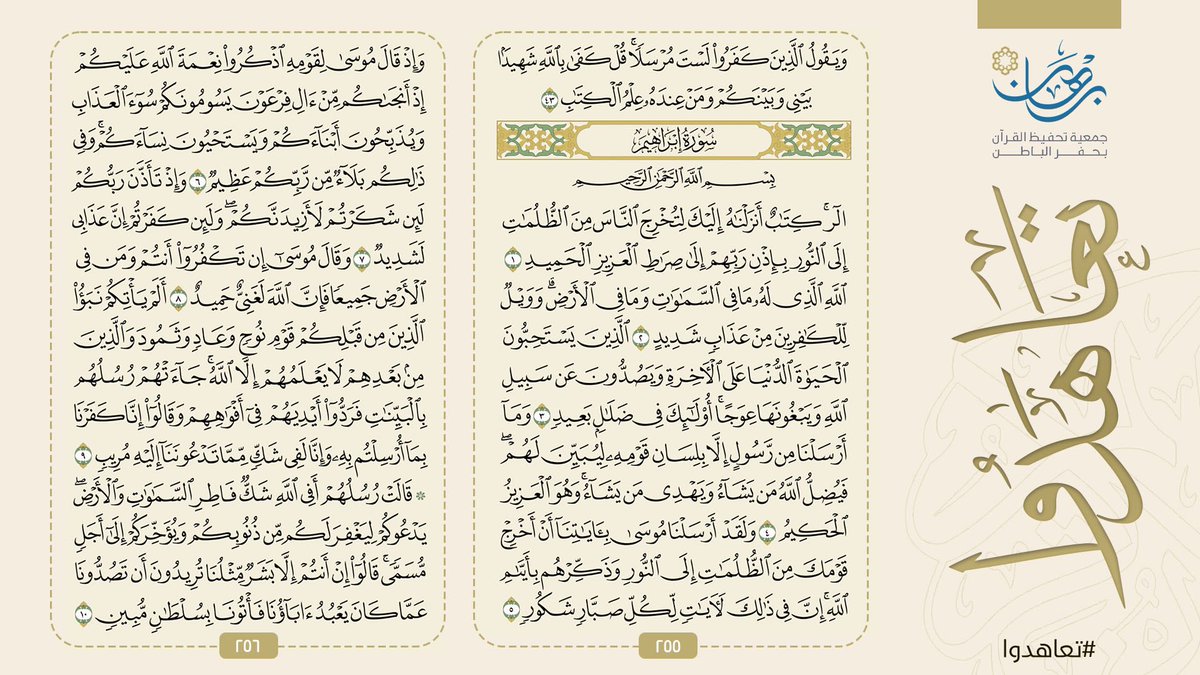 برهان
جمعية تحفيظ القرآن
بحفر الباطن
تعاهدوا
#تعاهدوا
وَيَقُولُ ٱلَّذِينَ كَفَرُواْ لَسۡتَ مُرۡسَلٗاۚ قُلۡ كَفَىٰ بِٱللَّهِ شَهِيدَۢا
بَيۡنِي وَبَيۡنَكُمۡ وَمَنۡ عِندَهُۥ عِلۡمُ ٱلۡكِتَٰبِ ٤٣
سُورَةُ إِبۡرَاهِيمَ
بِسۡمِ ٱللَّهِ ٱلرَّحۡمَٰنِ ٱلرَّحِيمِ
الٓرۚ كِتَٰبٌ أَنزَلۡنَٰهُ إِلَيۡكَ لِتُخۡرِجَ ٱلنَّاسَ مِنَ ٱلظُّلُمَٰتِ
إِلَى ٱلنُّورِ بِإِذۡنِ رَبِّهِمۡ إِلَىٰ صِرَٰطِ ٱلۡعَزِيزِ ٱلۡحَمِيدِ ١
ٱللَّهِ ٱلَّذِي لَهُۥ مَا فِي ٱلسَّمَٰوَٰتِ وَمَا فِي ٱلۡأَرۡضِۗ وَوَيۡلٞ
لِّلۡكَٰفِرِينَ مِنۡ عَذَابٖ شَدِيدٍ ٢ ٱلَّذِينَ يَسۡتَحِبُّونَ
ٱلۡحَيَوٰةَ ٱلدُّنۡيَا عَلَى ٱلۡأٓخِرَةِ وَيَصُدُّونَ عَن سَبِيلِ
ٱللَّهِ وَيَبۡغُونَهَا عِوَجًاۚ أُوْلَٰٓئِكَ فِي ضَلَٰلِۭ بَعِيدٖ ٣ وَمَآ
أَرۡسَلۡنَا مِن رَّسُولٍ إِلَّا بِلِسَانِ قَوۡمِهِۦ لِيُبَيِّنَ لَهُمۡۖ
فَيُضِلُّ ٱللَّهُ مَن يَشَآءُ وَيَهۡدِي مَن يَشَآءُۚ وَهُوَ ٱلۡعَزِيزُ
ٱلۡحَكِيمُ ٤ وَلَقَدۡ أَرۡسَلۡنَا مُوسَىٰ بِـَٔايَٰتِنَآ أَنۡ أَخۡرِجۡ
قَوۡمَكَ مِنَ ٱلظُّلُمَٰتِ إِلَى ٱلنُّورِ وَذَكِّرۡهُم بِأَيَّىٰمِ
ٱللَّهِۚ إِنَّ فِي ذَٰلِكَ لَأٓيَٰتٖ لِّكُلِّ صَبَّارٖ شَكُورٖ ٥
٢٥٥
وَإِذۡ قَالَ مُوسَىٰ لِقَوۡمِهِ ٱذۡكُرُواْ نِعۡمَةَ ٱللَّهِ عَلَيۡكُمۡ
إِذۡ أَنجَىٰكُم مِّنۡ ءَالِ فِرۡعَوۡنَ يَسُومُونَكُمۡ سُوٓءَ ٱلۡعَذَابِ
وَيُذَبِّحُونَ أَبۡنَآءَكُمۡ وَيَسۡتَحۡيُونَ نِسَآءَكُمۡۚ وَفِي
ذَٰلِكُم بَلَآءٞ مِّن رَّبِّكُمۡ عَظِيمٞ ٦ وَإِذۡ تَأَذَّنَ رَبُّكُمۡ
لَئِن شَكَرۡتُمۡ لَأَزِيدَنَّكُمۡۖ وَلَئِن كَفَرۡتُمۡ إِنَّ عَذَابِي
لَشَدِيدٞ ٧ وَقَالَ مُوسَىٰٓ إِن تَكۡفُرُوٓاْ أَنتُمۡ وَمَن فِي
ٱلۡأَرۡضِ جَمِيعٗا فَإِنَّ ٱللَّهَ لَغَنِيٌّ حَمِيدٌ ٨ أَلَمۡ يَأۡتِكُمۡ نَبَؤُاْ
ٱلَّذِينَ مِن قَبۡلِكُمۡ قَوۡمِ نُوحٖ وَعَادٖ وَثَمُودَ وَٱلَّذِينَ
مِنۢ بَعۡدِهِمۡ لَا يَعۡلَمُهُمۡ إِلَّا ٱللَّهُۚ جَآءَتۡهُمۡ رُسُلُهُم
بِٱلۡبَيِّنَٰتِ فَرَدُّوٓاْ أَيۡدِيَهُمۡ فِيٓ أَفۡوَٰهِهِمۡ وَقَالُوٓاْ إِنَّا كَفَرۡنَا
بِمَآ أُرۡسِلۡتُم بِهِۦ وَإِنَّا لَفِي شَكّٖ مِّمَّا تَدۡعُونَنَآ إِلَيۡهِ مُرِيبٖ ٩
۞ قَالَتۡ رُسُلُهُمۡ أَفِي ٱللَّهِ شَكّٞ فَاطِرِ ٱلسَّمَٰوَٰتِ وَٱلۡأَرۡضِۖ
يَدۡعُوكُمۡ لِيَغۡفِرَ لَكُم مِّن ذُنُوبِكُمۡ وَيُؤَخِّرَكُمۡ إِلَىٰٓ أَجَلٖ
مُّسَمّٗىۚ قَالُوٓاْ إِنۡ أَنتُمۡ إِلَّا بَشَرٞ مِّثۡلُنَا تُرِيدُونَ أَن تَصُدُّونَا
عَمَّا كَانَ يَعۡبُدُ ءَابَآؤُنَا فَأۡتُونَا بِسُلۡطَٰنٖ مُّبِينٖ ١٠
٢٥٦